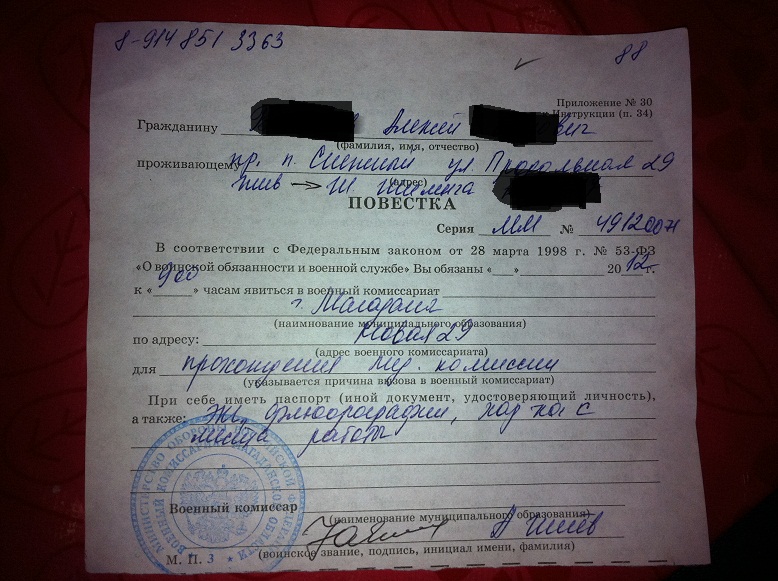 8-914 851 3363
88
Приложение № 30
Инструкции (п. 34)
Гражданину Алексей вич
(фамилия, имя, отчество)
проживающему пр. п. Снежный ул. Продольная 29
(адрес)
прож → ул.
ПОВЕСТКА
Серия ММ № 4912007
В соответствии с Федеральным законом от 28 марта 1998 г. № 53-ФЗ
«О воинской обязанности и военной службе» Вы обязаны «__» 2012г.
к «900» часам явиться в военный комиссариат
г. Магадана
(наимнование муниципального образования)
по адресу: Новая 29
(адрес военного комиссариата)
для прохождения мед. комиссии
(указывается причина вызова в военный комиссариат)
При себе иметь паспорт (иной документ, удостоверяющий личность),
а также: флюорографии, хар-ка с
места работы
Военный комиссар
(наименование муниципального образования)
(воинское звание, подпись, инициал имени, фамилия)
М. П. 3